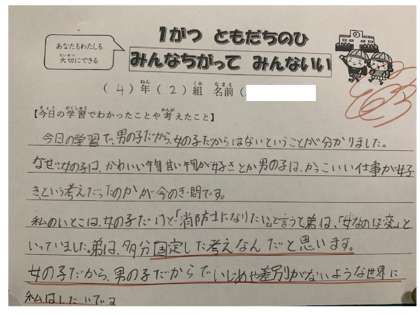 あなたもわたしも
大切にできる
1がつ ともだちのひ
みんなちがって みんないい
(4)年(2)組 名前(
【今日の学習でわかったことや考えたこと】
今日の学習で、男の子だから、女の子だからはないということが分かりました。
なぜ、女の子は、かわいい物、甘い物が好きとか男の子は、かっこいい仕事が好
きという考えだったのかが今のぎ問です。
私のいとこは、女の子だけで「消防士になりたい」と言って弟は、「女なのに変」と
いっていました。弟は、多分固定した考えなんだと思います。
女の子だから、男の子だからでいじめや差別がないような世界に
私はしたいです